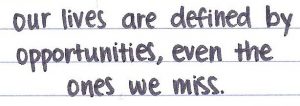 our lives are defined by
opportunities, even the
ones we miss.